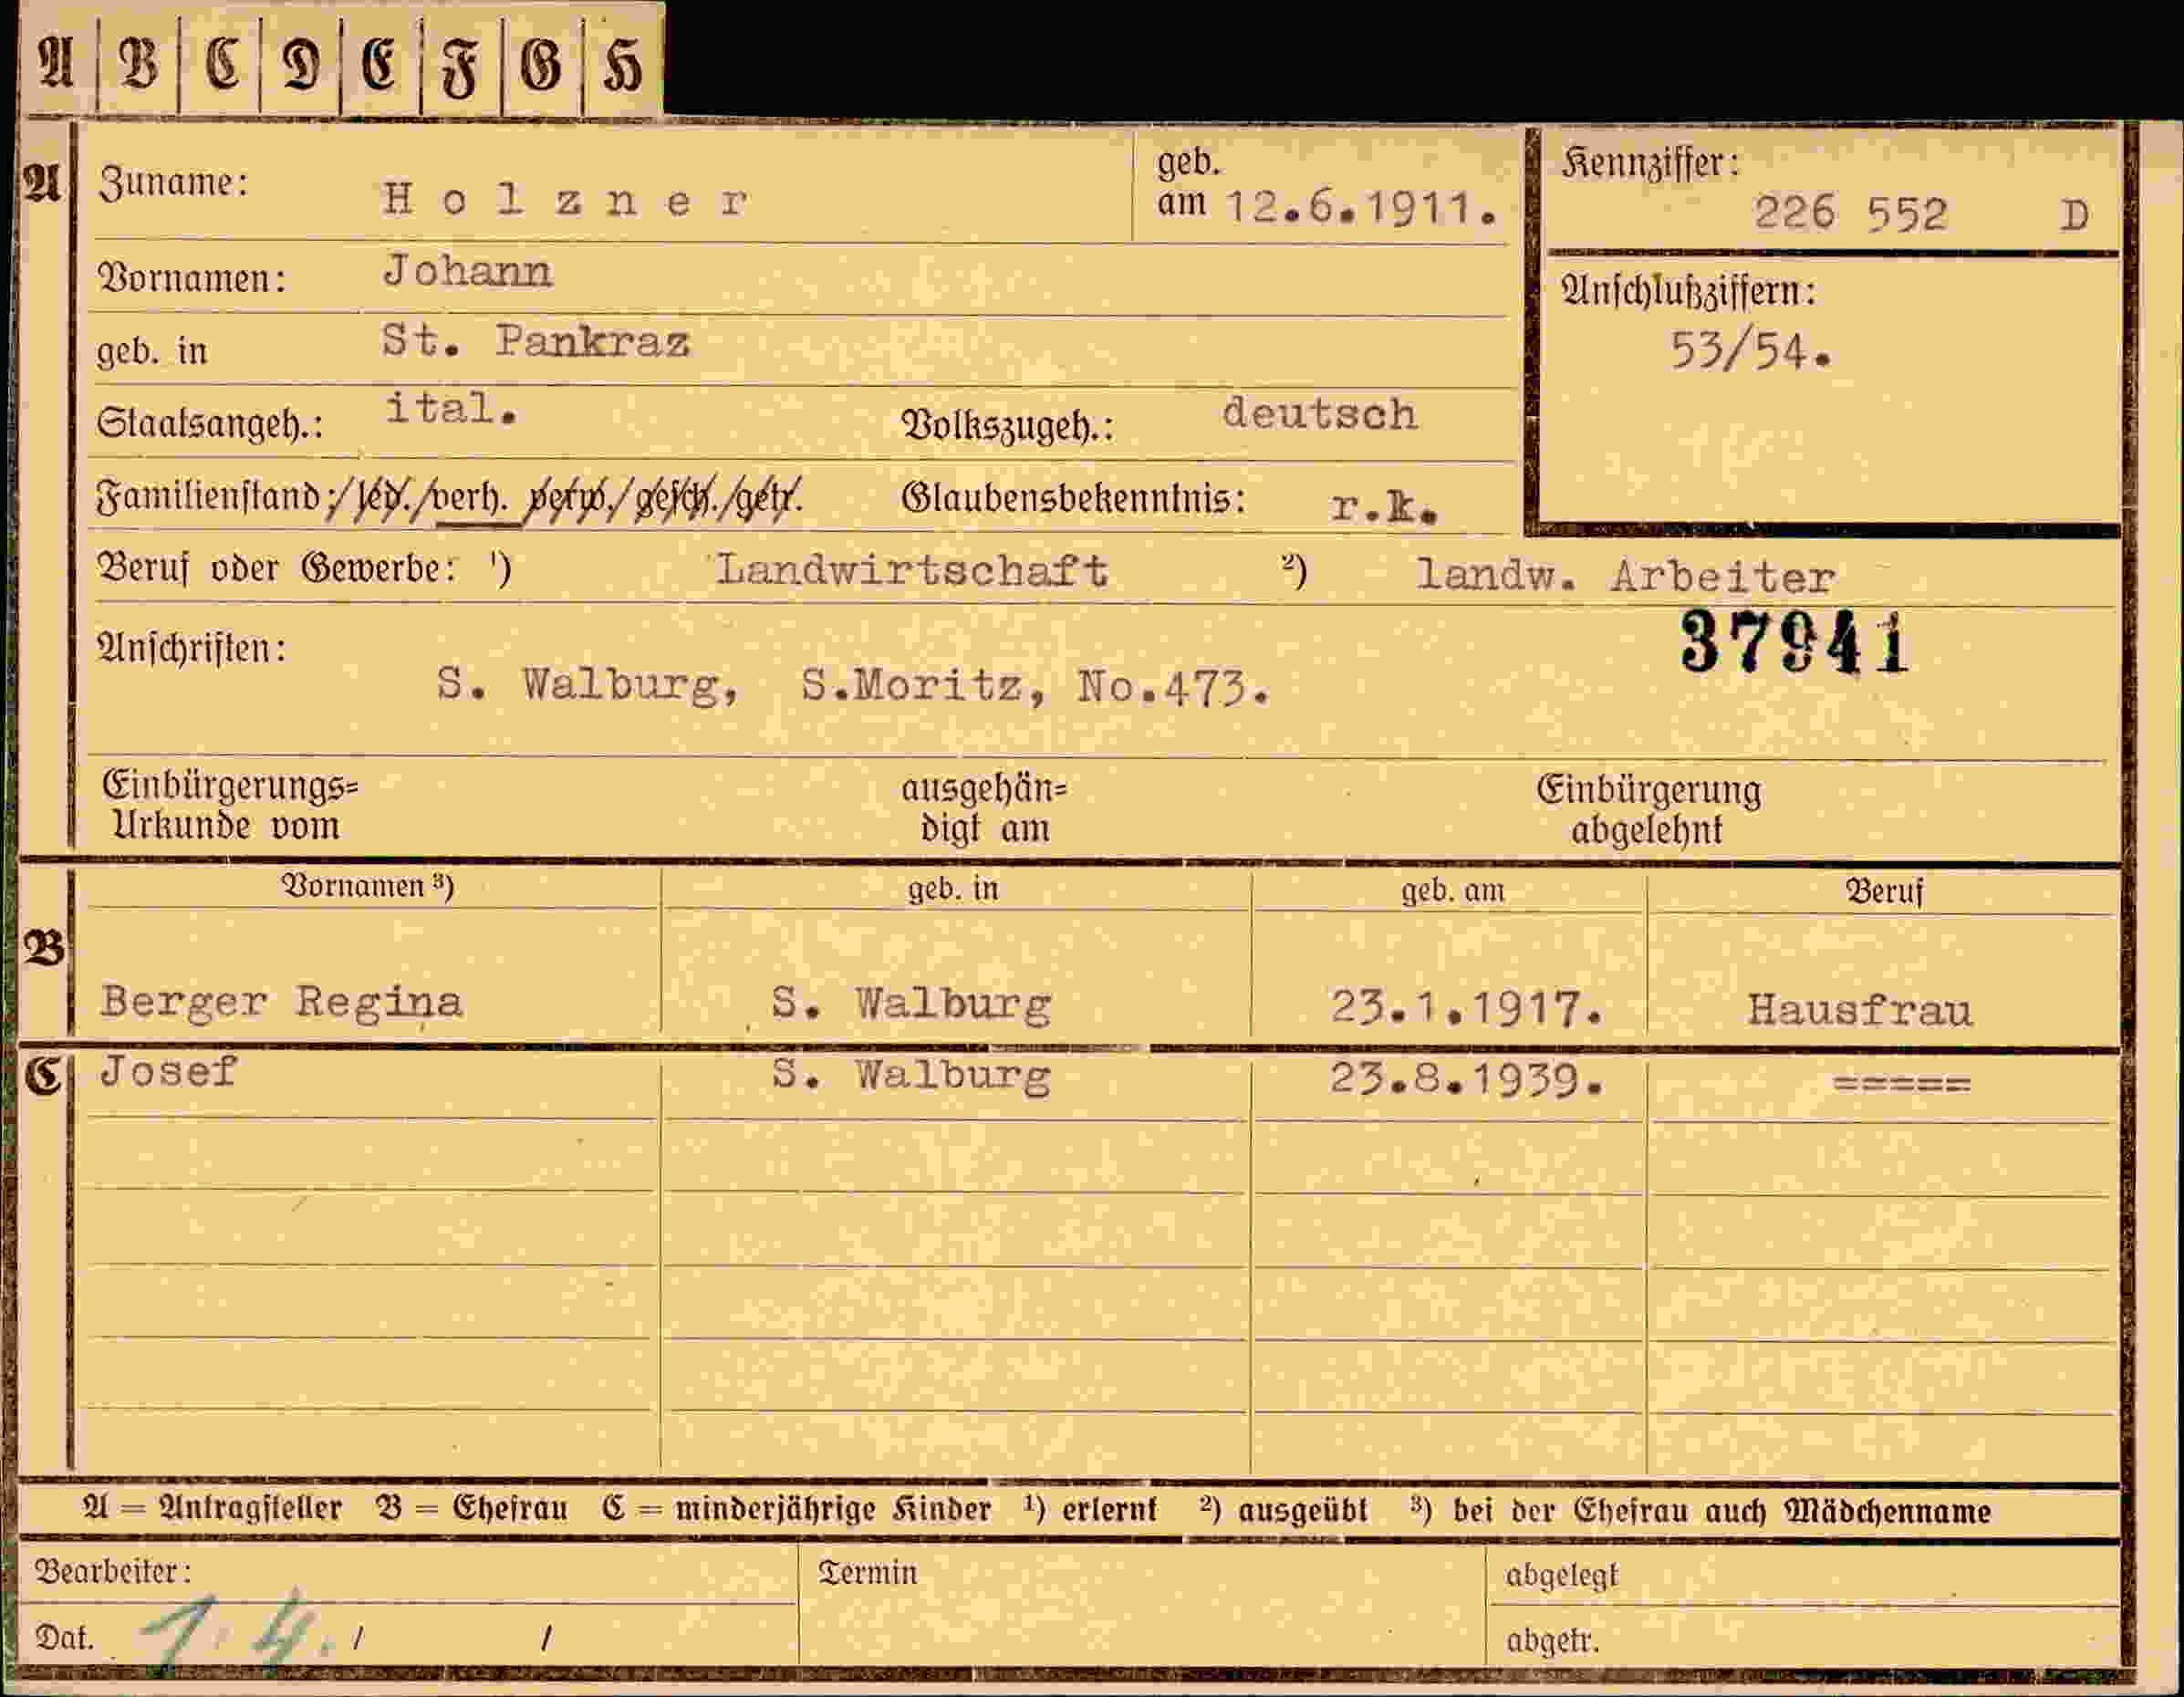 A B C D E F G H
A Zuname: Holzner geb. am 12.6.1911. Kennziffer: 226 552 D
Vornamen: Johann Anschlußziffern:
geb. in St. Pankraz 53/54.
Staatsangeh.: ital. Volkszugeh.: deutsch
Familienstand:/led./verh. verw./gesch./getr. Glaubensbekenntnis: r.k.
Beruf oder Gewerbe: ¹) Landwirtschaft ²) landw. Arbeiter
37941
Anschriften:
S. Walburg, S.Moritz, No.473.
Einbürgerungs= ausgehän= Einbürgerung
Urkunde vom digt am abgelehnt
Vornamen ³) geb. in geb. am Beruf
B
Berger Regina S. Walburg 23.1.1917. Hausfrau
C Josef S. Walburg 23.8.1939. =====
A = Antragsteller B = Ehefrau C = minderjährige Kinder ¹) erlernt ²) ausgeübt ³) bei der Ehefrau auch Mädchenname
Bearbeiter: Termin abgelegt
Dat. 1.4. / / abgetr.